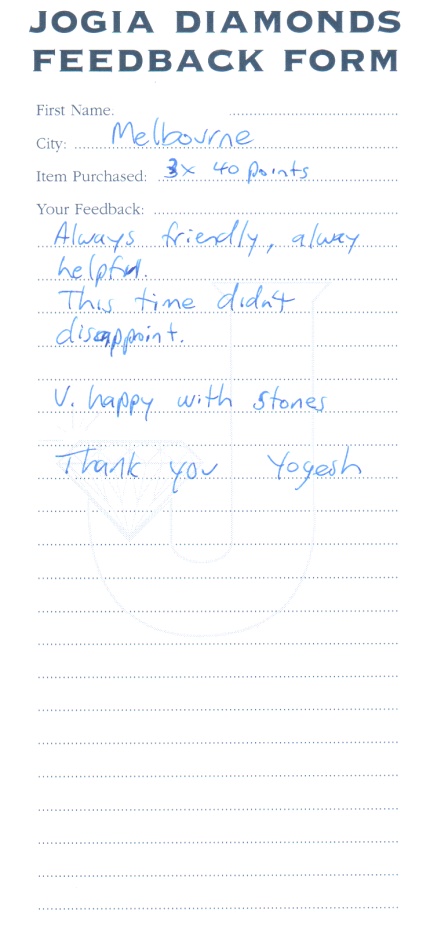 JOGIA DIAMONDS
FEEDBACK FORM
First Name.
City: Melbourne
Item Purchased: 3x 40 points
Your Feedback:
Always friendly, alway
helpful.
This time didn't
disappoint.
V. happy with stones
Thank you Yogesh